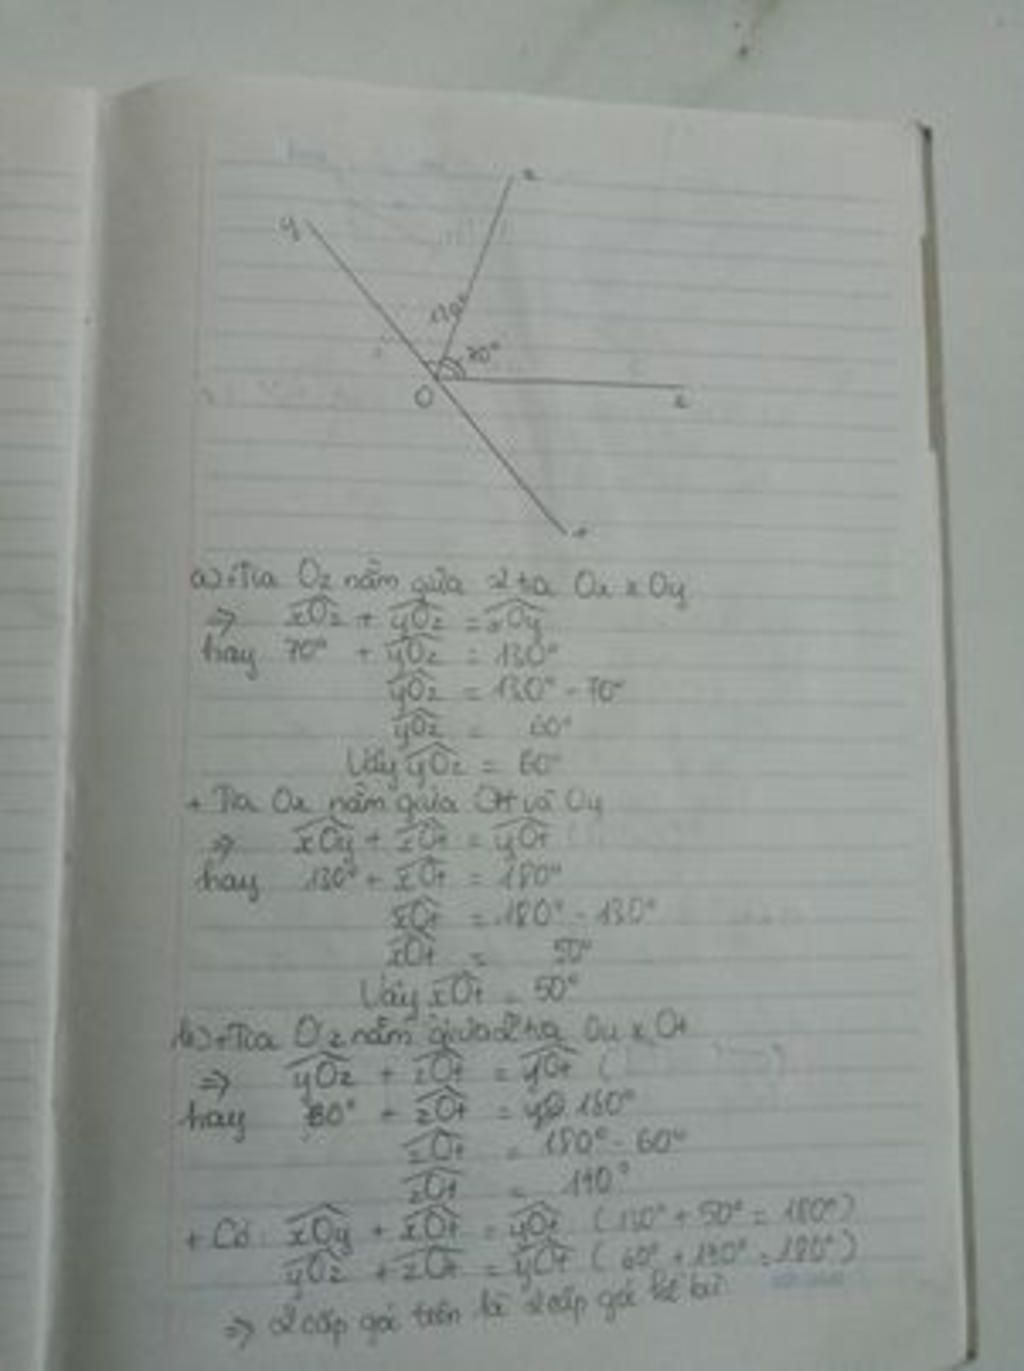 z
y
130°
70°
O
x
t
a) + Tia Oz nằm giữa 2 tia Ox x Oy
=> xOz + yOz = xOy
hay 70° + yOz = 130°
yOz = 130° - 70°
yOz = 60°
Vậy yOz = 60°
+ Tia Ox nằm giữa Ot và Oy
=> xOy + xOt = yOt
hay 130° + xOt = 180°
xOt = 180° - 130°
xOt = 50°
Vậy xOt = 50°
b) + Tia Oz nằm giữa 2 tia Oy x Ot
=> yOz + zOt = yOt (
hay 60° + zOt = 180°
zOt = 180° - 60°
zOt = 190°
+ Có: xOy + xOt = yOt (130° + 50° = 180°)
yOz + zOt = yOt (60° + 190° = 180°)
=> 2 cặp góc trên là 2 cặp góc kề bù